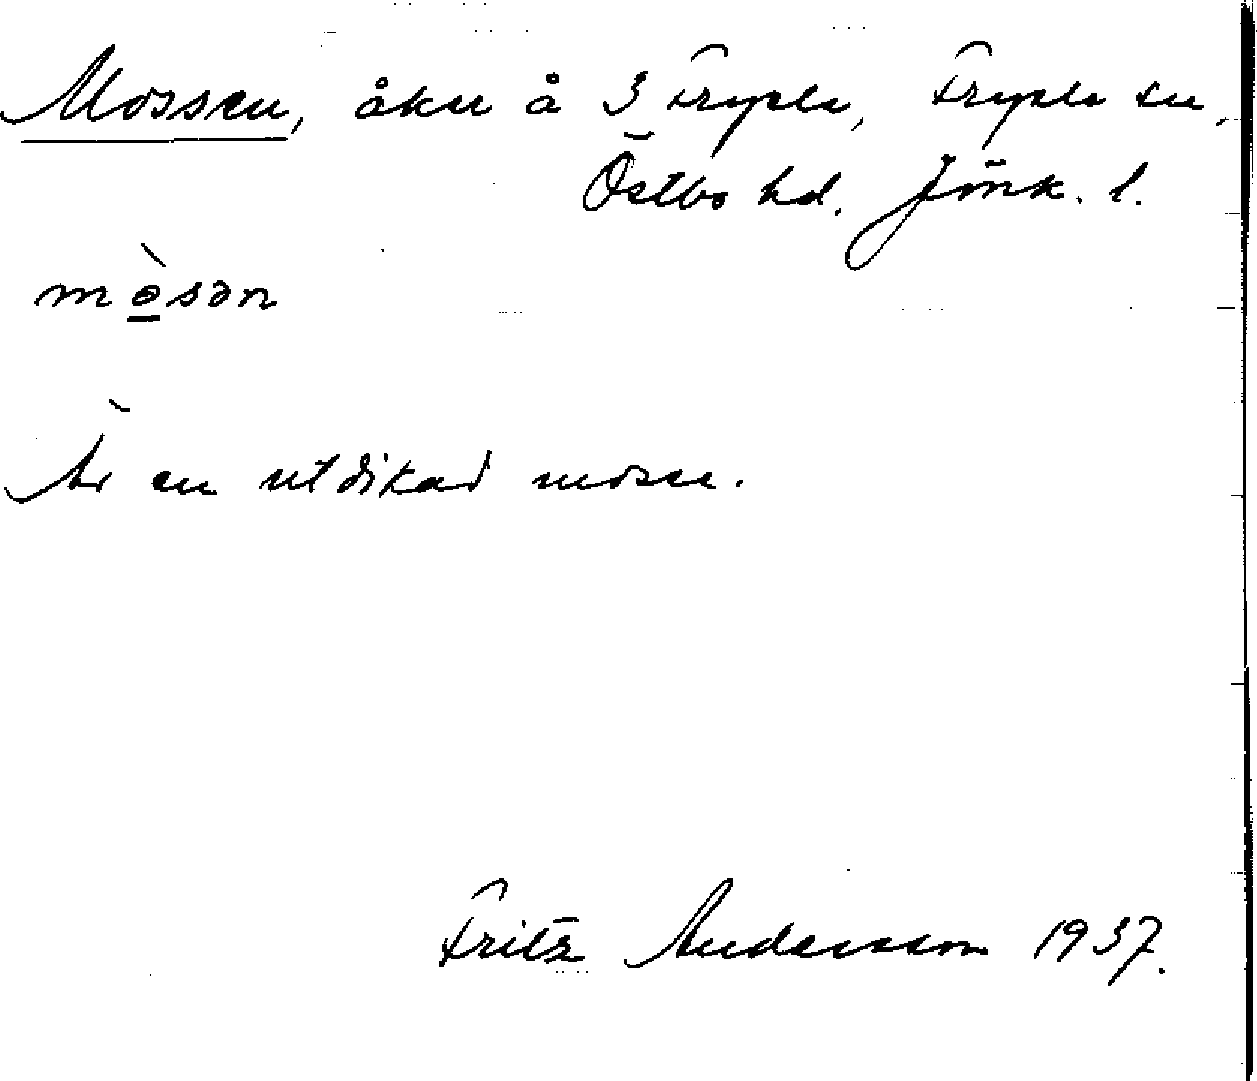 Mossen, åker å 3 Fryele, Fryele sn,
Östbo hd. Jönk. l.
mòsən
Är en utdikad mosse.
Fritz Andersson 1937.